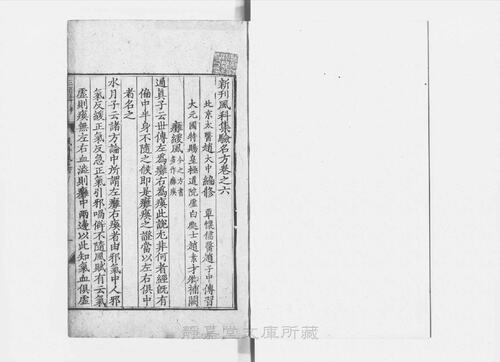 新刊風科集驗名方卷之六
北京太醫趙大中編修 覃懷儒醫趙子中傳習
大元國特賜皇極道院虛白處士趙素才卿補闕
癱緩風 今之方書多作癱瘓
通真子云世傳左為癱右為瘓此說尤非何者經旣有
偏中半身不隨之候即是癱瘓之證當以左右俱中
者名之
水月子云諸方論中所謂左癱右瘓者由邪氣中人邪
氣反緩正氣反急正氣引邪喎僻不隨風賦有云氣
虛則瘓無左右血澁則癱中兩邊以此知氣血俱虛
靜嘉堂文庫所藏